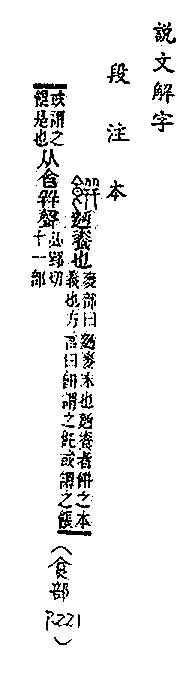 說文解字
段注本
餠麪餈也麥部曰麪麥末也麪餈者餅之本
義也方言曰餅謂之飥或謂之餦
或謂之
餛是也从食幷聲必郢切
十一部
（食部
P.221）